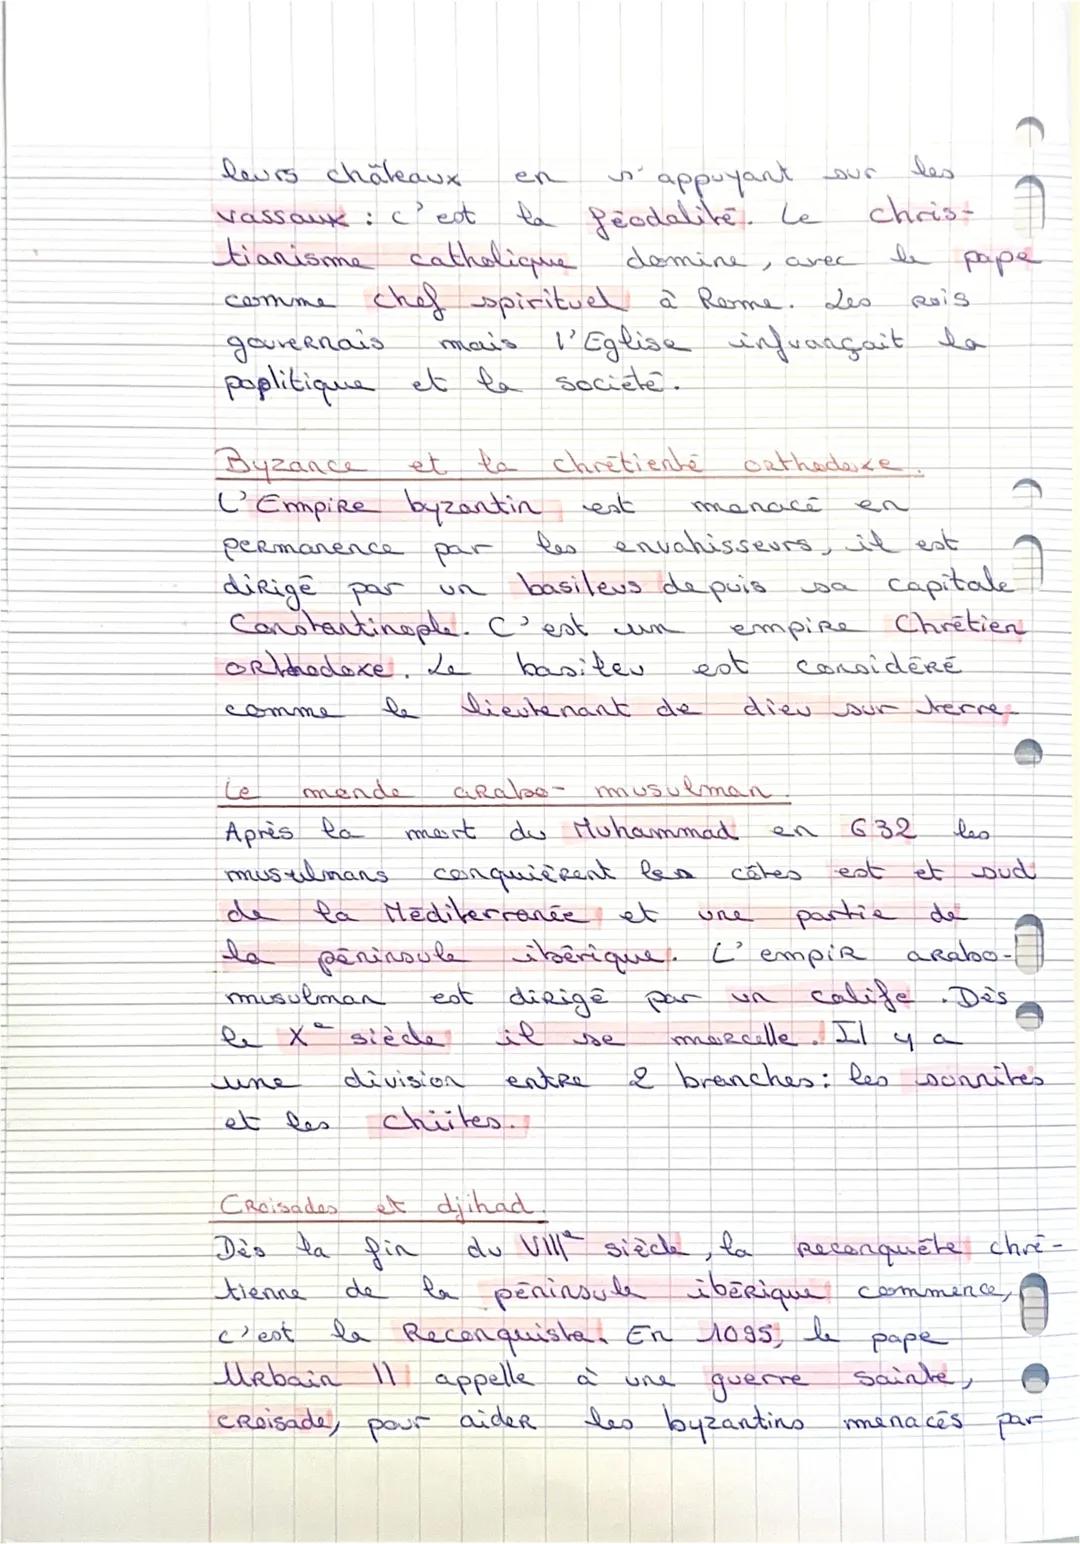 leurs châteaux en s'appuyant sur les
vassaux : c'est la féodalité. Le chris-
tianisme catholique domine, avec le pape
comme chef spirituel à Rome. Les Rois
gouvernais mais l'Eglise infuançait la
poplitique et la société.
Byzance et la chrétienté orthodoxe.
L'Empire byzantin est menacé en
permanence par les envahisseurs, il est
dirigé par un basileus depuis sa capitale
Constantinople. C'est un empire Chrétien
orthodoxe. Le basileu est considéré
comme le lieutenant de dieu sur terre.
Le monde arabo-musulman.
Après la mort du Muhammad en 632 les
musulmans conquièrent les côtes est et sud
de la Méditerranée et une partie de
la péninsule ibérique. L'empir arabo-
musulman est dirigé par un calife. Dès
le Xe siècle il se morcelle. Il y a
une division entre 2 branches : les sunnites
et les chiites.
Croisades et djihad.
Dès la fin du VIIIe siècle, la Reconquête chré-
tienne de la péninsule ibérique commence,
c'est la Reconquista. En 1095, le pape
Urbain II appelle à une guerre sainte,
croisade, pour aider les byzantins menacés par